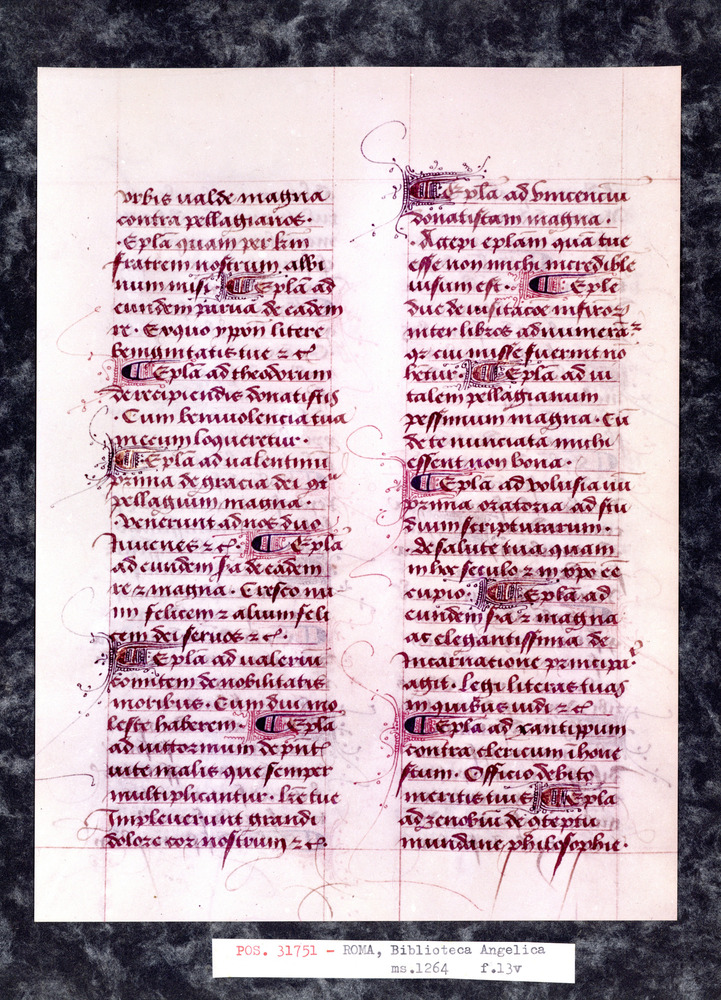 vrbis ualde magna
contra pellagianos·
·Epl̄a quam per k̄m
fratrem nostrum albi
num misi· Epl̄a ad
eundem parua de eadem
re· Ex quo ypon̄ litere
benignitatis tue ⁊ c̄
Epl̄a ad theodorum
de recipiendis donatistis
·Cum beniuolencia tua
mecum loqueretur·
Epl̄a ad ualentinū
prima de gracia dei 9tͣ
pellagium magna·
·Venerunt ad nos duo
Iuuenes ⁊ c̄· Epl̄a
ad eundem ·ij·a de eadem
re ⁊ magna· Cresconi
um felicem ⁊ alium feli
cem dei seruos ⁊ c̄·
Epl̄a ad ualeriū
comitem de nobilitatis
moribus· Cum diu mo
leste haberem· Epl̄a
ad uictorinum de pn̄t̄
uite malis que semper
multiplicantur· Lr̄e tue
Impleuerunt grandi
dolore cor nostrum ⁊ c̄·
Epl̄a ad vincenciū
donatistam magna·
·Accepi epl̄am quā tue
esse non michi incredibile
uisum est· Epl̄e
due de uisitac̄oe infirorꝫ
inter libros adnumeraꝫ
qꝫ cui misse fuerint no
hetur· Epl̄a ad ui
talem pellagianum
pessimum magna· Cū
de te nunciata michi
essent non bona·
Epl̄a ad volusianū
prima oratoria ad stu
dium scripturarum·
·de salute tua quam
in hoc seculo ⁊ in xp̄o ee
cupio· Epl̄a ad
eundem ·ij·a ⁊ magna
ac elegantissima de
Incarnatione principiꝰ
agit· Legi literas tuas
in quibus uidi ⁊ c̄
Epl̄a ad xantippum
contra clericum ihone
stum· Officio debito
meritis tuis Epl̄a
ad zenobiū de 9teptu
mundane philosophie·
POS. 31751 - ROMA, Biblioteca Angelica
ms.1264 f.13v